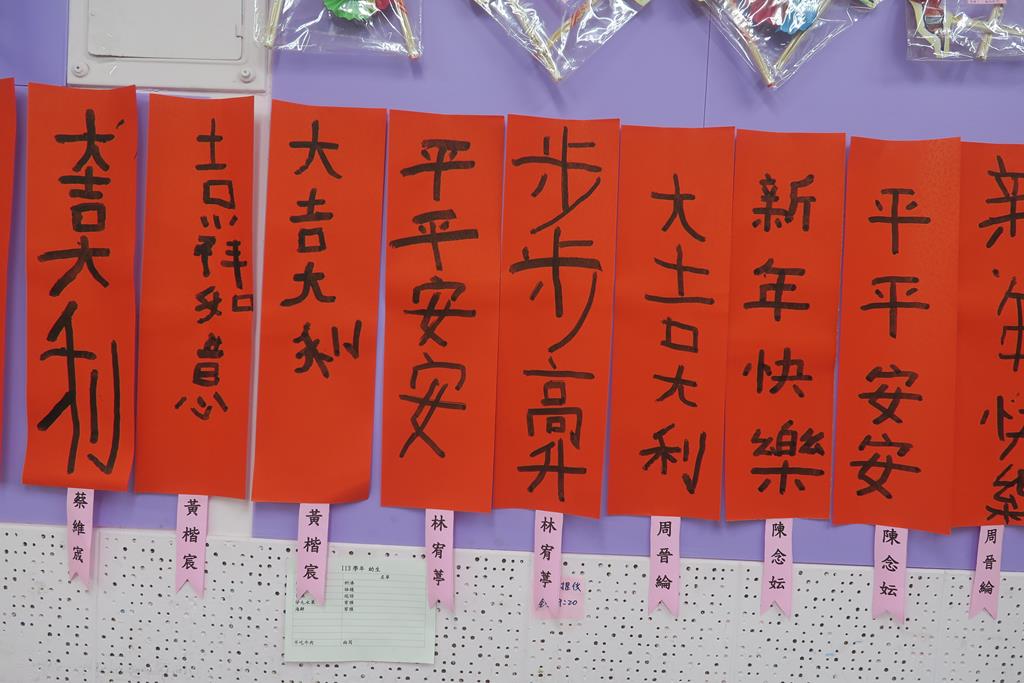 大吉大利
吉祥如意
大吉大利
平平安安
步步高升
大吉大利
新年快樂
平平安安
新年快樂
蔡維宬
黃楷宸
黃楷宸
林宥葶
林宥葶
周晉綸
陳念妘
陳念妘
周晉綸
113學年
名單